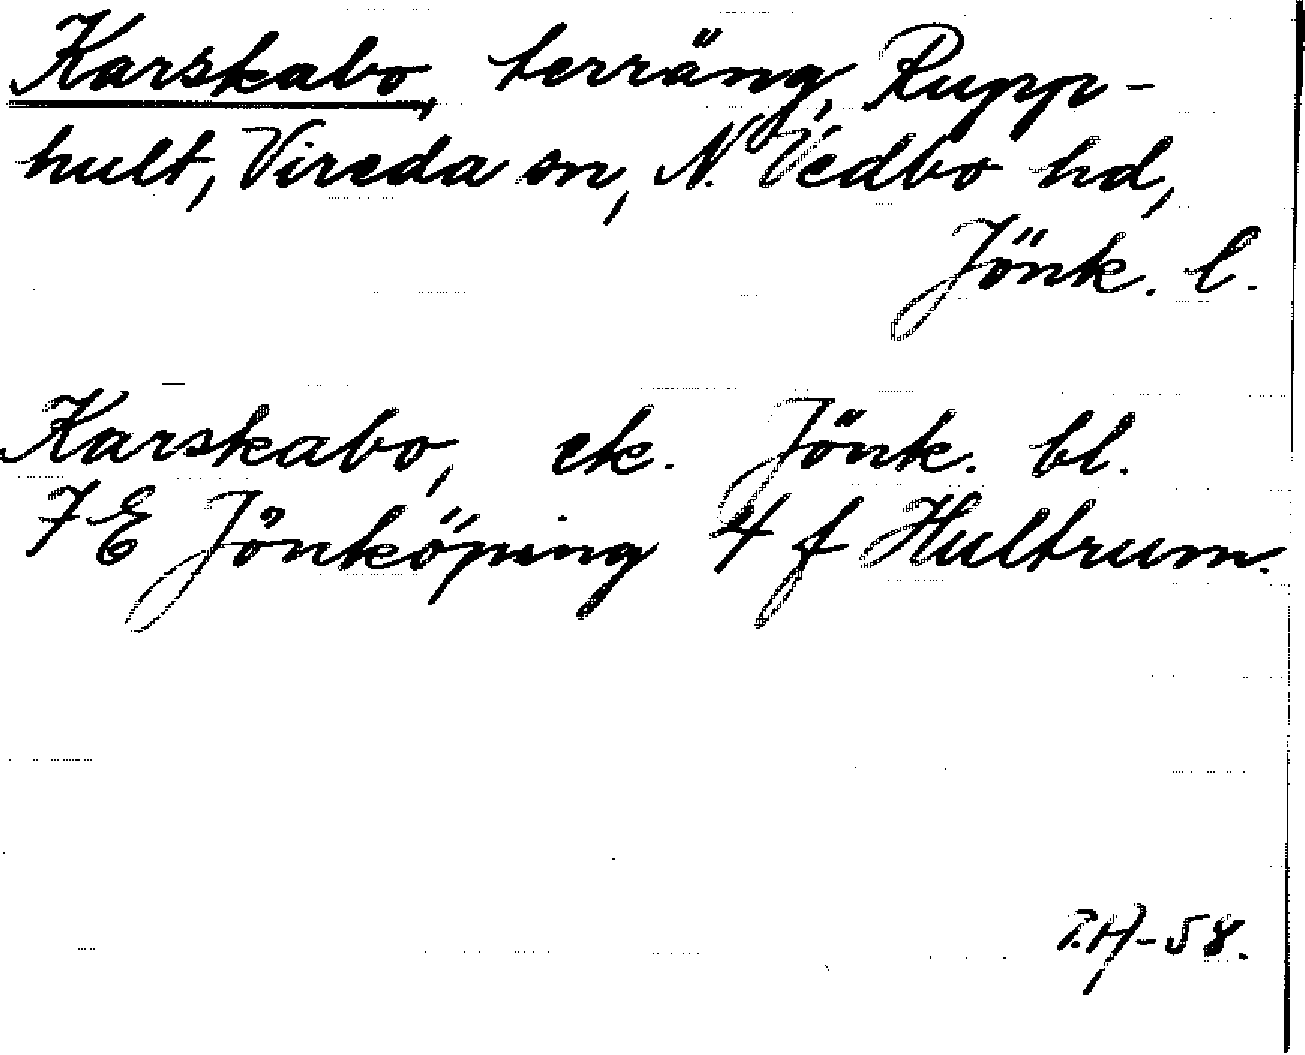 Karskabo, terräng, Rupp-
hult, Vireda sn, N. Vedbo hd,
Jönk. l.
Karskabo, ek. Jönk. bl.
7E Jönköping 4 f Hultrum.
P.H-58.